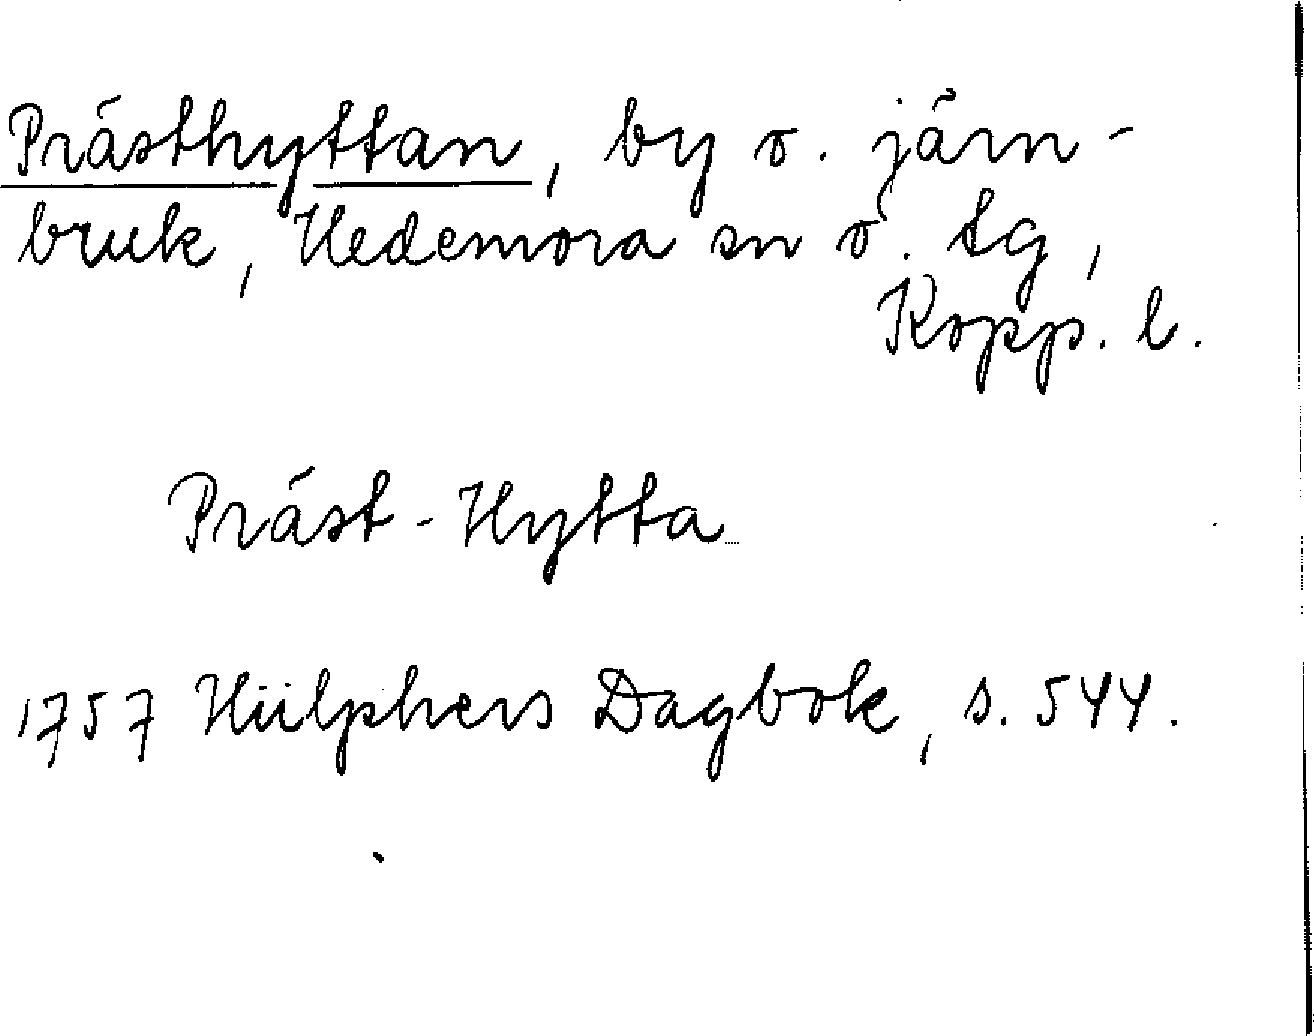 Prästhyttan, by o. järn-
bruk, Hedemora sn o. tg,
Kopp. l.
Präst-Hytta
1757 Hülphers Dagbok, s. 544.